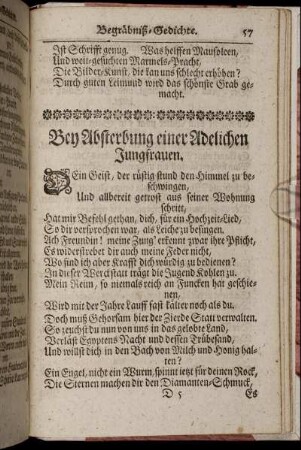 Begräbniß-Gedichte. 57
Ist Schrifft genug. Was helffen Mausoleen,
Und weit-gesuchten Marmels-Pracht,
Die Bilder-Kunst, die kan uns schlecht erhöhen?
Durch guten Leimuld wird das schönste Grab ge-
macht.
Bey Absterbung einer Adelichen
Jungfrauen.
DEin Geist, der rüstig stund den Himmel zu be-
schwingen,
Und allbereit getrost aus seiner Wohnung
schritt,
Hat mir Befehl gethan, dich, für ein Hochzeit-Lied,
So dir versprochen war, als Leiche zu besingen.
Ach Freundin! meine Zung' erkennt zwar ihre Pflicht,
Es widerstrebet dir auch meine Feder nicht,
Wo find ich aber Krafft dich würdig zu bedienen?
In dieser Werckstatt trägt die Jugend Kohlen zu.
Mein Reim, so niemals reich an Funcken hat geschie-
nen,
Wird mit der Jahre Lauff fast kälter noch als du.
Doch muß Gehorsam hier der Zierde Statt verwalten.
So zeuchst du nun von uns in das gelobte Land,
Verläst Egyptens Nacht und dessen Trübesand,
Und willst dich in den Bach von Milch und Honig hal-
ten?
Ein Engel, nicht ein Wurm, spinnt ietzt für deinen Rock,
Die Sternen machen dir den Diamanten-Schmuck,
D 5 Es